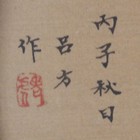 丙子秋日
吕方
作